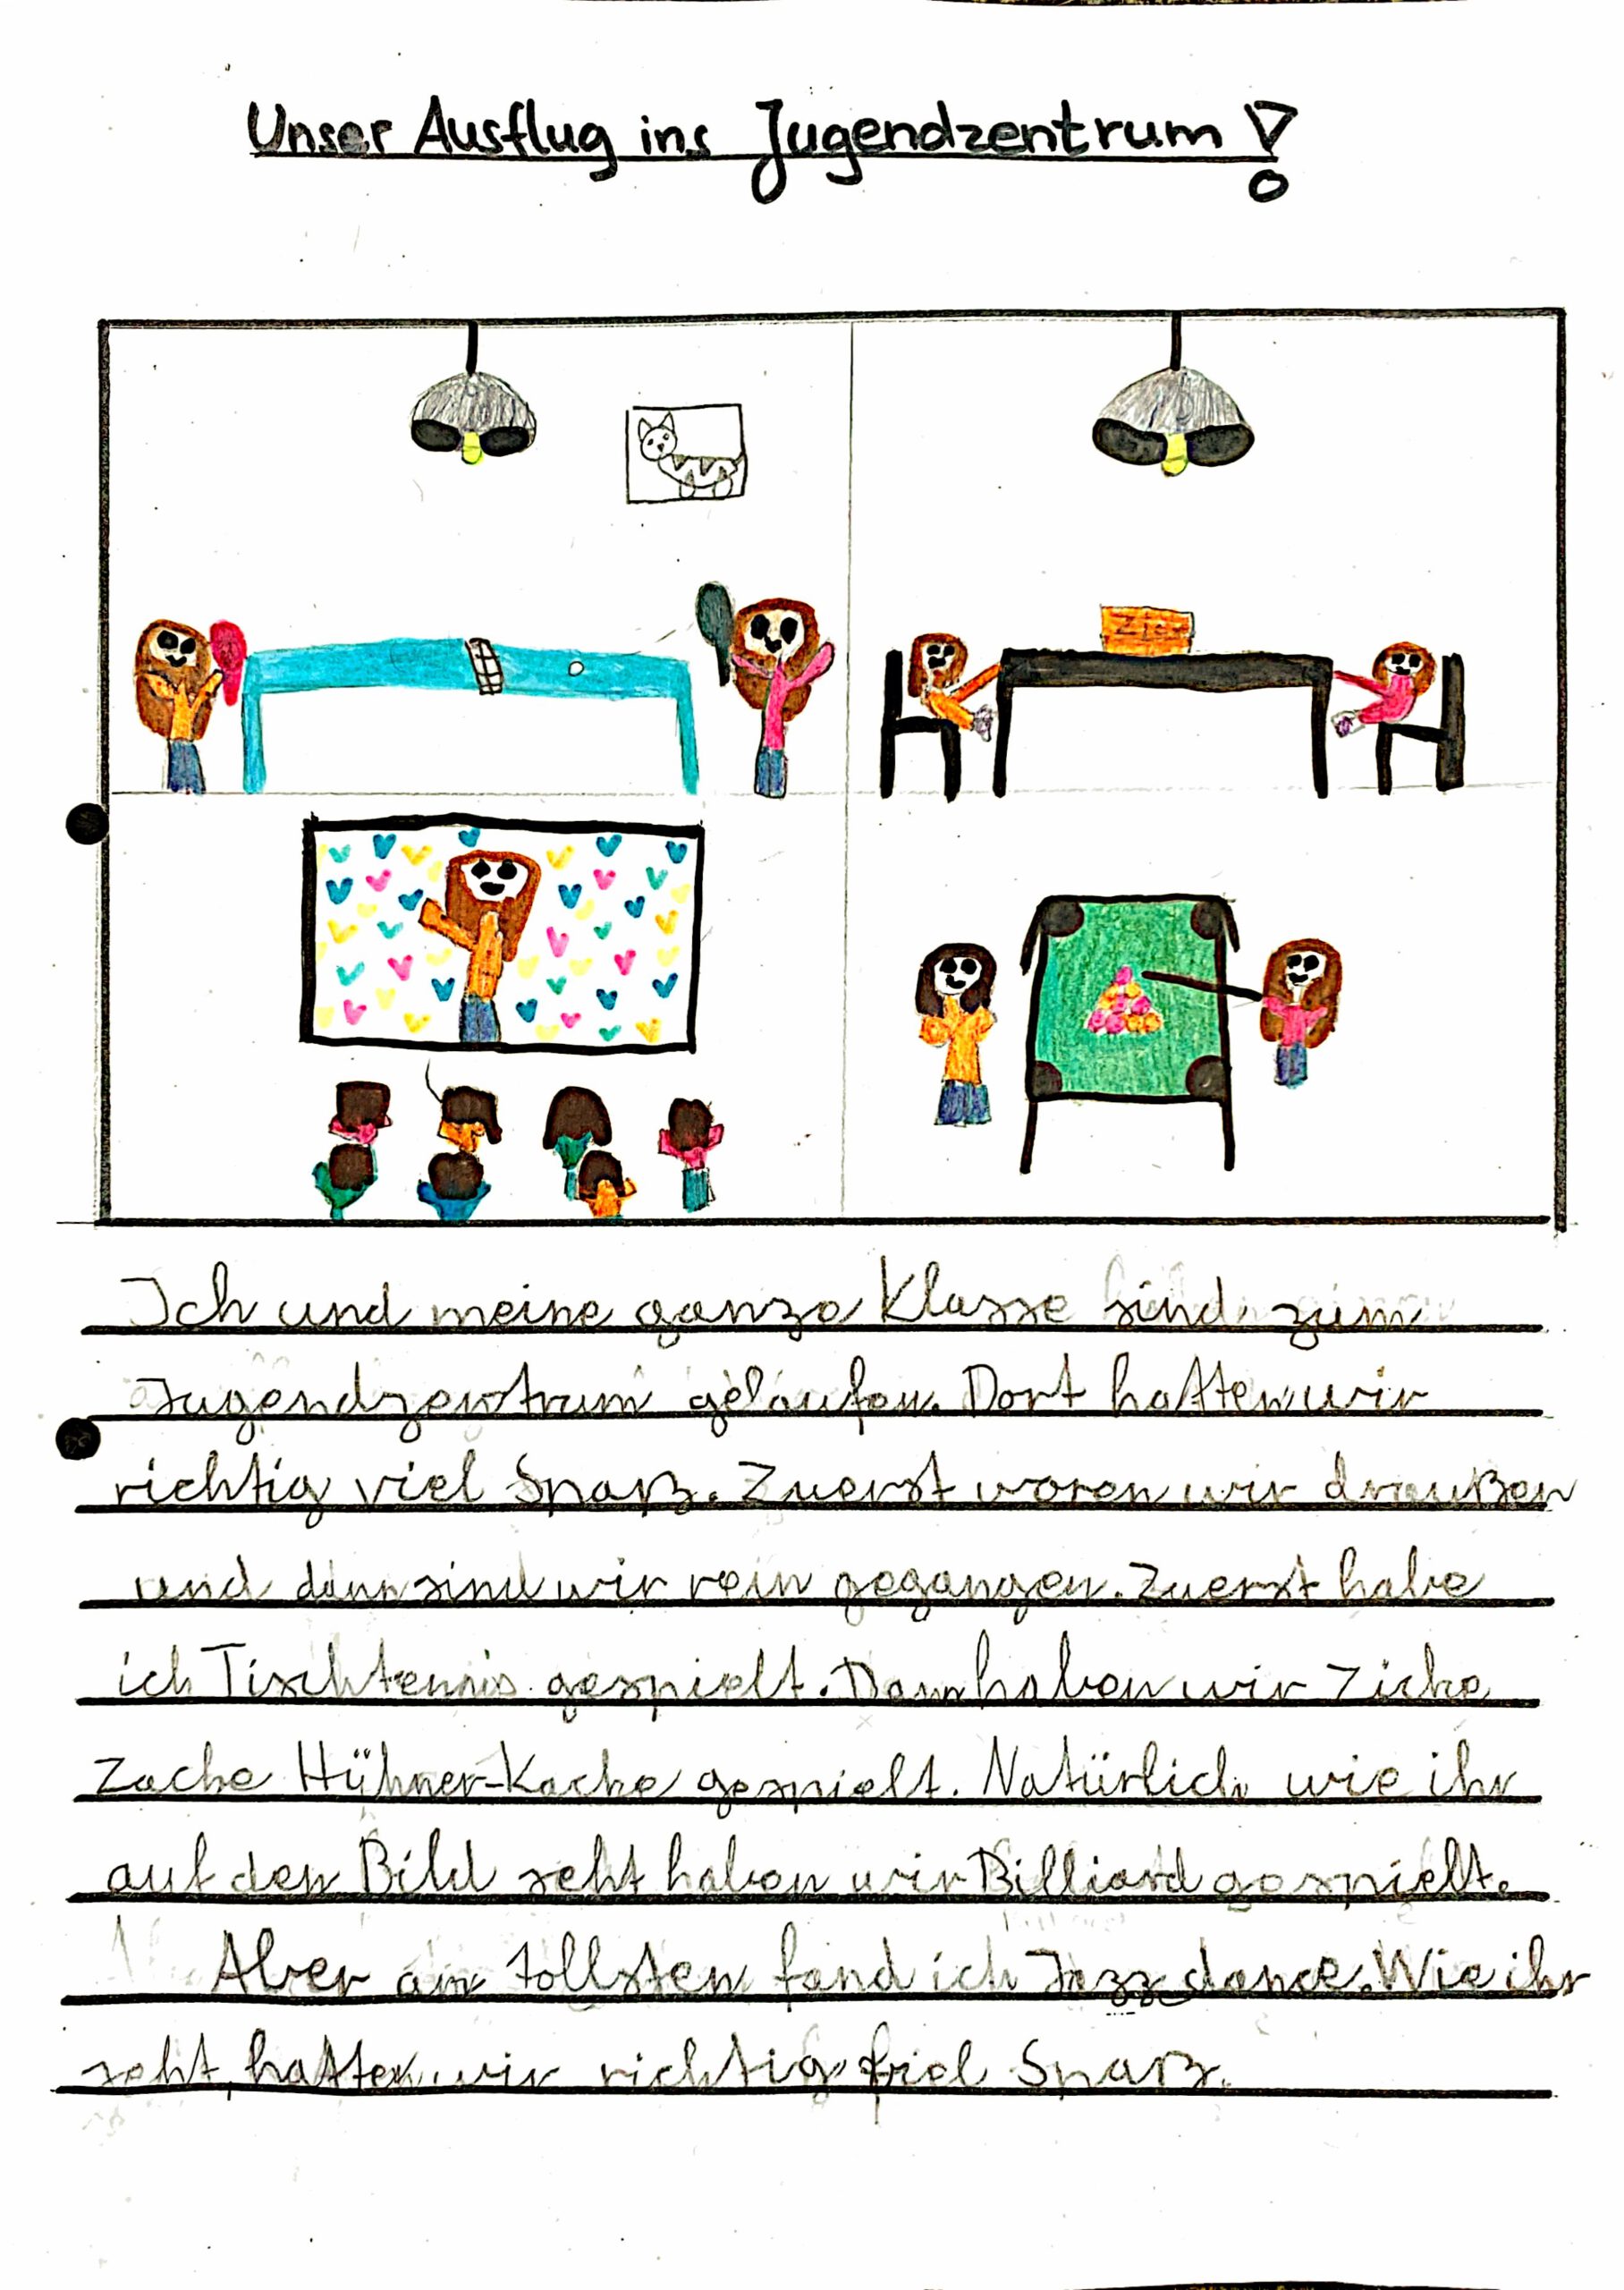 Unser Ausflug ins Jugendzentrum!
Zick
Ich und meine ganze Klasse sind zum
Jugendzentrum gelaufen. Dort hatten wir
richtig viel Spaß. Zuerst waren wir draußen
und dann sind wir rein gegangen. Zuerst habe
ich Tischtennis gespielt. Dann haben wir Zicke
Zacke Hühner-Kacke gespielt. Natürlich wie ihr
auf den Bild seht haben wir Billiard gespielt.
Aber am tollsten fand ich Jazzdance. Wie ihr
seht, hatten wir richtig fiel Spaß.